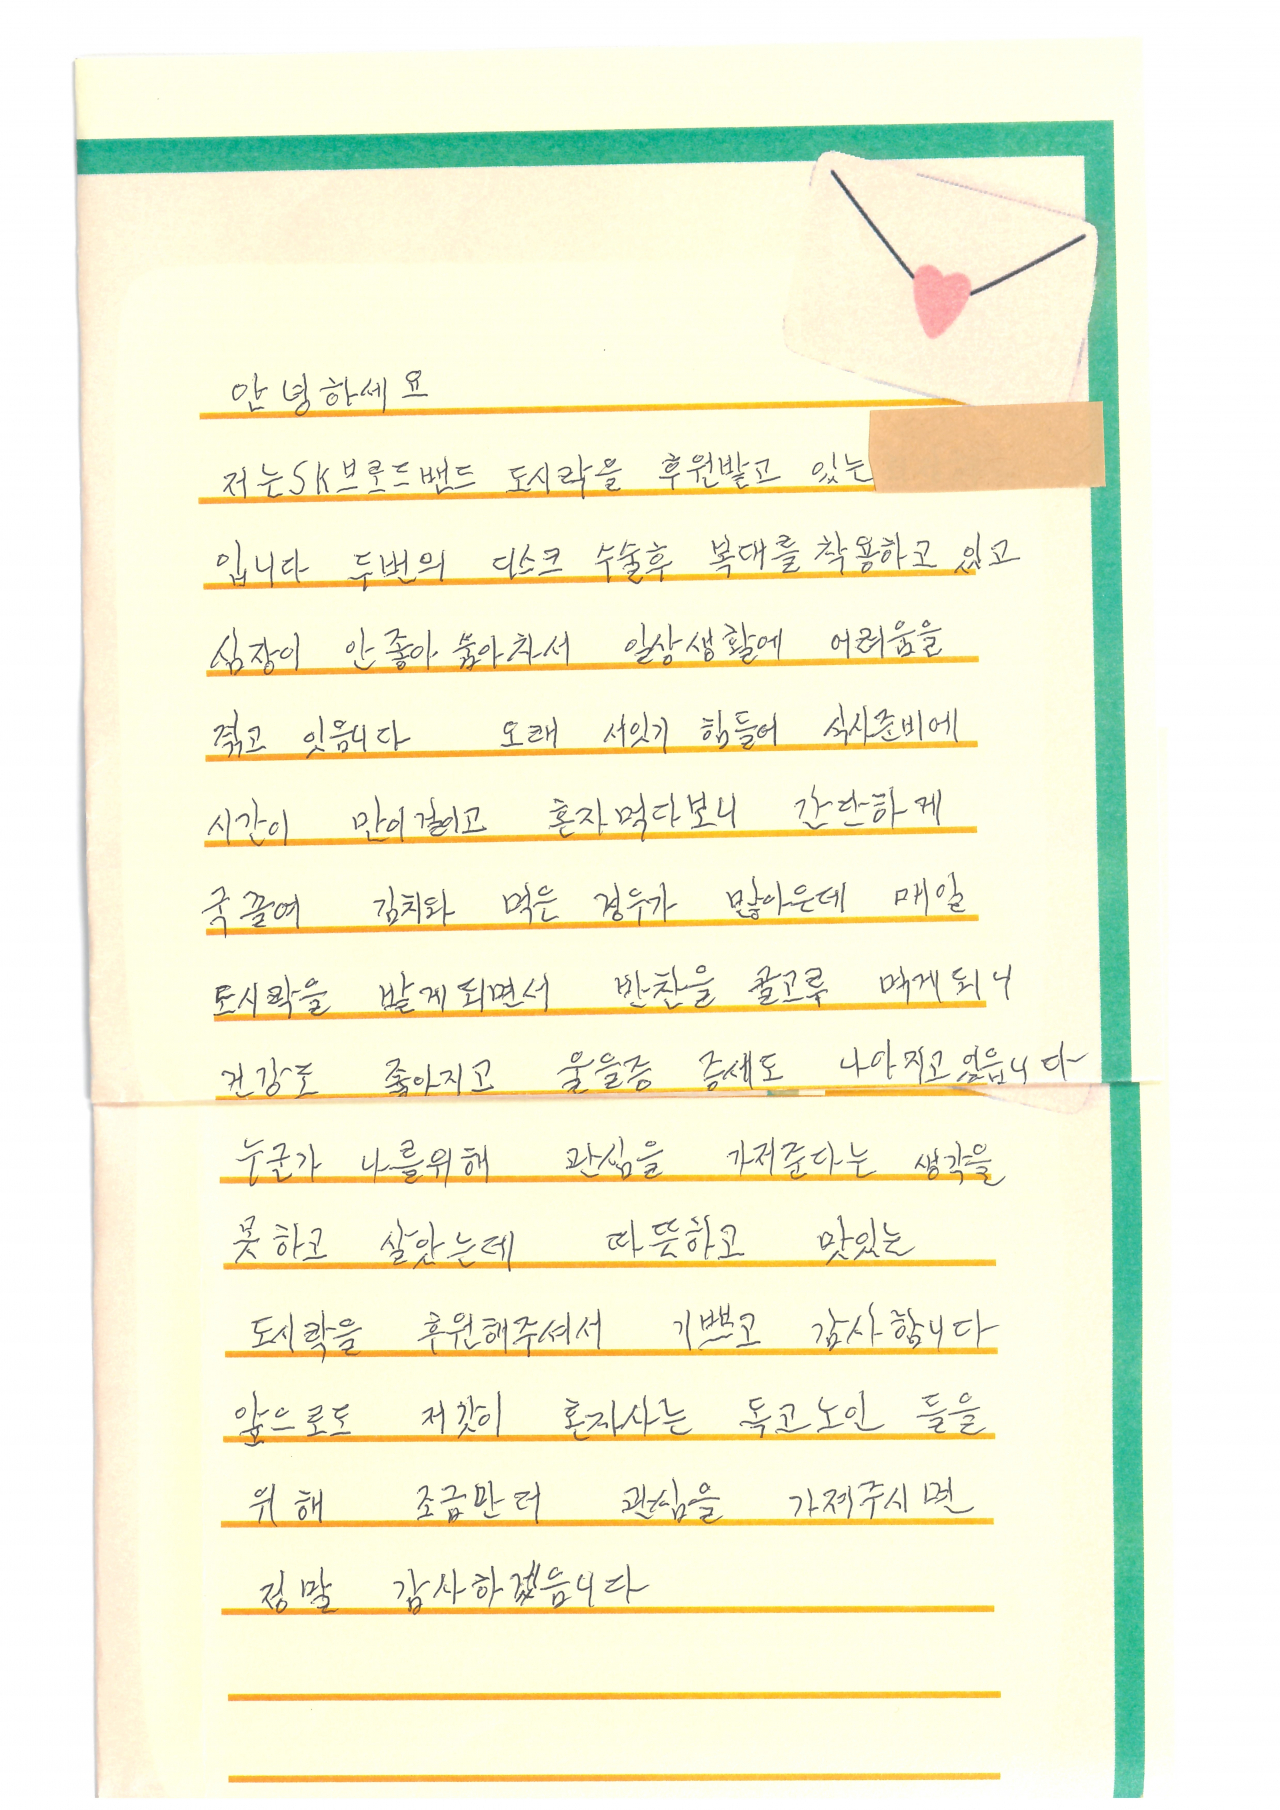 안녕하세요
저는 SK브로드밴드 도시락을 후원받고 있는
입니다 두번의 디스크 수술후 복대를 착용하고 있고
심장이 안좋아 숨아차서 일상생활에 어려움을
겪고 잇읍니다 오래 서있기 힘들어 식사준비에
시간이 만이 걸이고 혼자먹다보니 간단하게
국 끌여 김치와 먹은 경우가 많아은데 매일
도시락을 받게되면서 반찬을 골고루 먹게되니
건강도 좋아지고 울을증 증세도 나아지고 있읍니다
누군가 나를위해 관심을 가져준다는 생각을
못하고 살앗는데 따뜻하고 맛있는
도시락을 후원해주셔서 기쁘고 감사합니다
앞으로도 저갓이 혼자사는 독고노인 들을
위해 조금만 더 관심을 가져주시면
정말 감사하겠읍니다